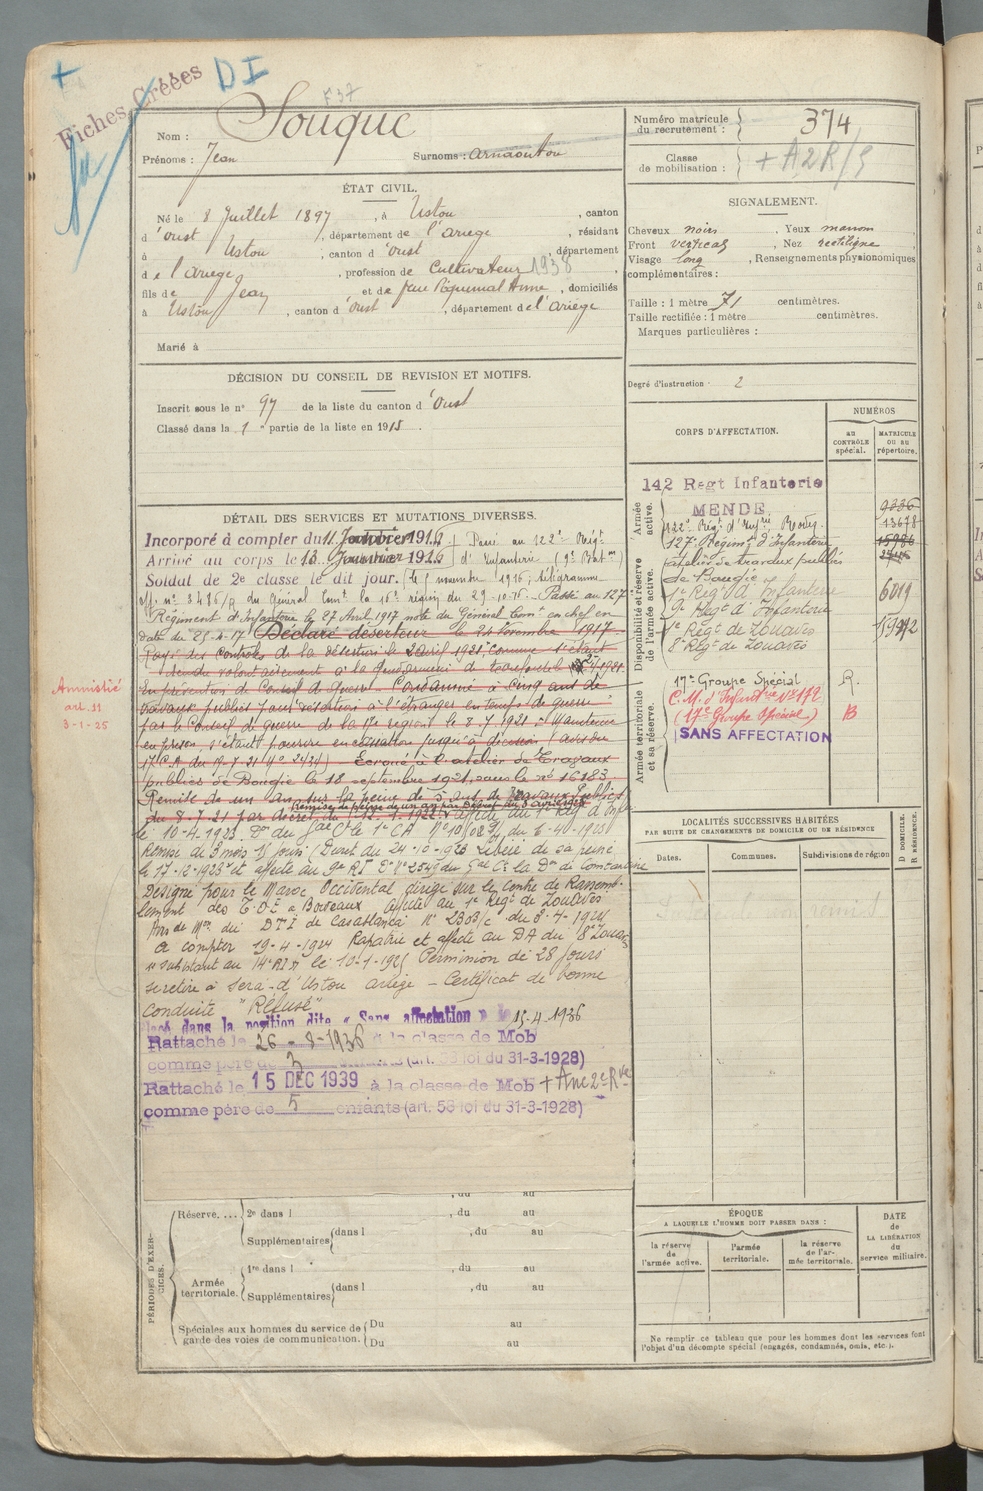 Fiches Créées
DI
F37
Nom : Souque
Prénoms : Jean Surnoms : Arnaoutou
Numéro matricule du recrutement : 374
Classe de mobilisation : + A2R/S
ÉTAT CIVIL.
Né le 8 Juillet 1897, à Ustou, canton
d'Oust, département de l'Ariège, résidant
à Ustou, canton d'Oust, département
de l'Ariège, profession de Cultivateur 1938
fils de Jean et de feue Piquemal Anne, domiciliés
à Ustou, canton d'Oust, département de l'Ariège
Marié à
SIGNALEMENT.
Cheveux noirs. Yeux marron
Front vertical, Nez rectiligne,
Visage long, Renseignements physionomiques
complémentaires :
Taille : 1 mètre 71 centimètres.
Taille rectifiée : 1 mètre centimètres.
Marques particulières :
Degré d'instruction 2
DÉCISION DU CONSEIL DE REVISION ET MOTIFS.
Inscrit sous le n° 97 de la liste du canton d'Oust
Classé dans la 1e partie de la liste en 1915.
CORPS D'AFFECTATION.
NUMÉROS
au CONTRÔLE spécial.
MATRICULE OU AU répertoire.
Armée active.
142 Regt Infanterie
MENDE 9236
122e Régt d'Infrie Rodez 13678
127e Régimt d'Infanterie 15986
Atelier de travaux publics
de Bougie
Disponibilité et réserve de l'armée active.
1er Régt d'Infanterie 6019
9e Regt d'Infanterie
1e Regt de Zouaves
8e Regt de Zouaves
Armée territoriale et sa réserve.
17e Groupe Spécial R.
C.M. d'Infantrie N° 172
(17e Groupe Spécial) B
SANS AFFECTATION
DÉTAIL DES SERVICES ET MUTATIONS DIVERSES.
Incorporé à compter du 11 Janvier 1916 Passé au 122e Régt
Arrivé au corps le 13 Janvier 1916 d'Infanterie (9e Baton)
Soldat de 2e classe le dit jour. télégramme
off. n° 3486/R du Général Comt la 16e région du 29-10-16. Passé au 127e
Régiment d'Infanterie le 27 Avril 1917 note du Général Comt en chef en
date du 25-4-17 Déclaré déserteur le 24 Novembre 1917.
Rayé des Contrôles de la désertion le 2 avril 1921 comme s'étant
rendu volontairement à la Gendarmerie de
En prévention de Conseil de Guerre. Condamné à Cinq ans de
travaux publics pour désertion à l'étranger en temps de guerre
par le Conseil de Guerre de la 17e région le 8-7-1921. Maintenu
en prison, s'étant pourvu en cassation jusqu'à décision (avis du
17e C.A. du 19-7-21 N° 2434) Ecroué à l'atelier de Travaux
publics de Bougie le 18 septembre 1921, sous le n° 16183.
Remise de un an sur la peine de 5 ans de Travaux Publics
(Remise de peine de un an par Décret du 3 avril 1923)
du 8-7-21 par décret du 12-1-1922. Affecté au 1er Reg d'Infie
le 10-4-1923 Don du Gal Ct le 1er CA N° du 6-4-1923
Remise de 3 mois 15 jours (Décret du 24-10-1923 Libéré de sa peine
le 17-12-1923 et affecté au 9e RI du Gal Ct la Don de Constantine
Désigné pour le Maroc Occidental dirigé sur le centre de Rassemb-
lement des T.O.E. à Bordeaux affecté au 1er Regt de Zouaves
du DTI de Casablanca N° 2308/c du 8-4-1924
à compter 19-4-1924 Rapatrié et affecté au DA du 8e Zouaves
subsistant au 14e RI le 10-1-1925 Permission de 28 jours
se retire à Sérac-d'Ustou Ariège - Certificat de bonne
Conduite "Refusé"
Placé dans la position dite « Sans affectation » le 15-4-1936
Rattaché le 26-8-1936 à la classe de Mob
comme père de 3 enfants (art. 58 loi du 31-3-1928)
Rattaché le 15 DEC 1939 à la classe de Mob + Anc 2e Rve
comme père de 5 enfants (art. 58 loi du 31-3-1928)
Amnistié
art. 11
3-1-25
LOCALITÉS SUCCESSIVES HABITÉES
PAR SUITE DE CHANGEMENTS DE DOMICILE OU DE RÉSIDENCE
Dates. Communes. Subdivisions de région
D DOMICILE. R RÉSIDENCE.
PÉRIODES D'EXERCICES.
, du au
Réserve.... 2e dans l , du au
Supplémentaires dans l , du au
Armée territoriale. 1re dans l , du au
Supplémentaires dans l , du au
Spéciales aux hommes du service de Du au
garde des voies de communication. Du au
ÉPOQUE
A LAQUELLE L'HOMME DOIT PASSER DANS :
la réserve de l'armée active.
l'armée territoriale.
la réserve de l'armée territoriale.
DATE de LA LIBÉRATION du service militaire.
Ne remplir ce tableau que pour les hommes dont les services font
l'objet d'un décompte spécial (engagés, condamnés, omis, etc.).